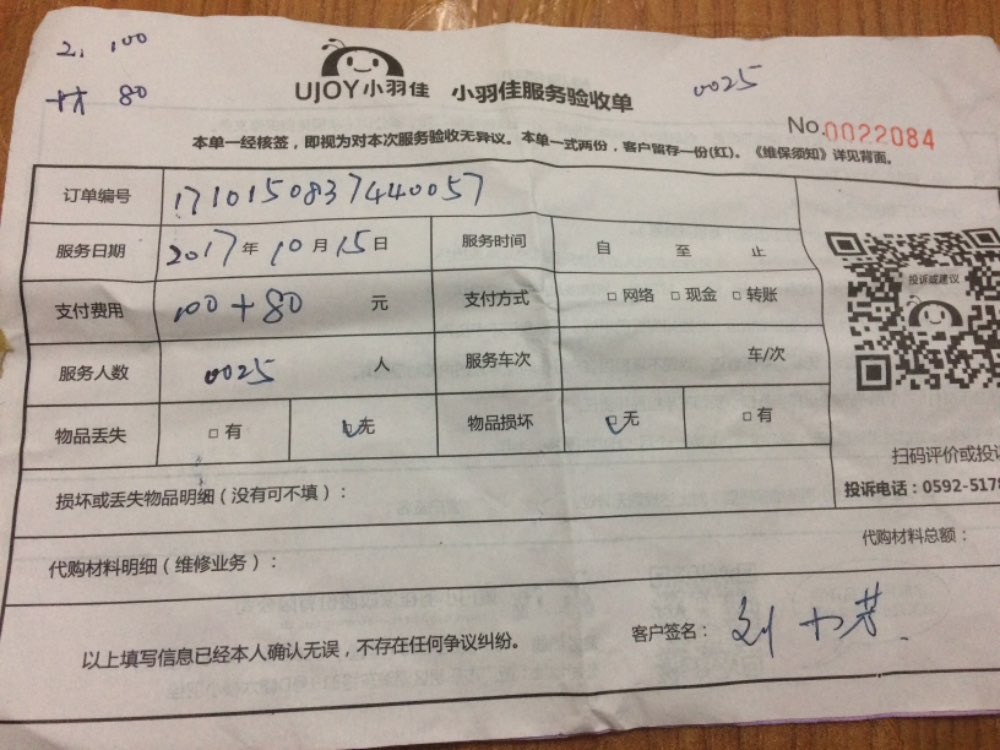 2. 100
材 80
UJOY小羽佳 小羽佳服务验收单
0025
No.0022084
本单一经核签，即视为对本次服务验收无异议。本单一式两份，客户留存一份(红)。《维保须知》详见背面。
订单编号 1710150837440057
服务日期 2017年10月15日 服务时间 自 至 止
支付费用 100+80 元 支付方式 □网络 □现金 □转账
服务人数 0025 人 服务车次 车/次
物品丢失 □有 □无 物品损坏 □无 □有
投诉或建议
扫码评价或投诉
损坏或丢失物品明细（没有可不填）：
投诉电话：0592-5178
代购材料总额：
代购材料明细（维修业务）：
客户签名：刘
以上填写信息已经本人确认无误，不存在任何争议纠纷。